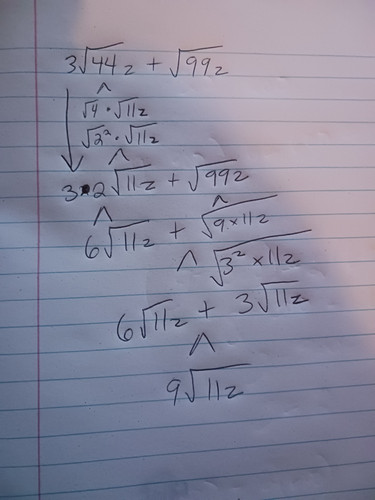 3√44z + √99z
√4 · √11z
√2² · √11z
3·2√11z + √99z
6√11z + √9×11z
√3²×11z
6√11z + 3√11z
9√11z